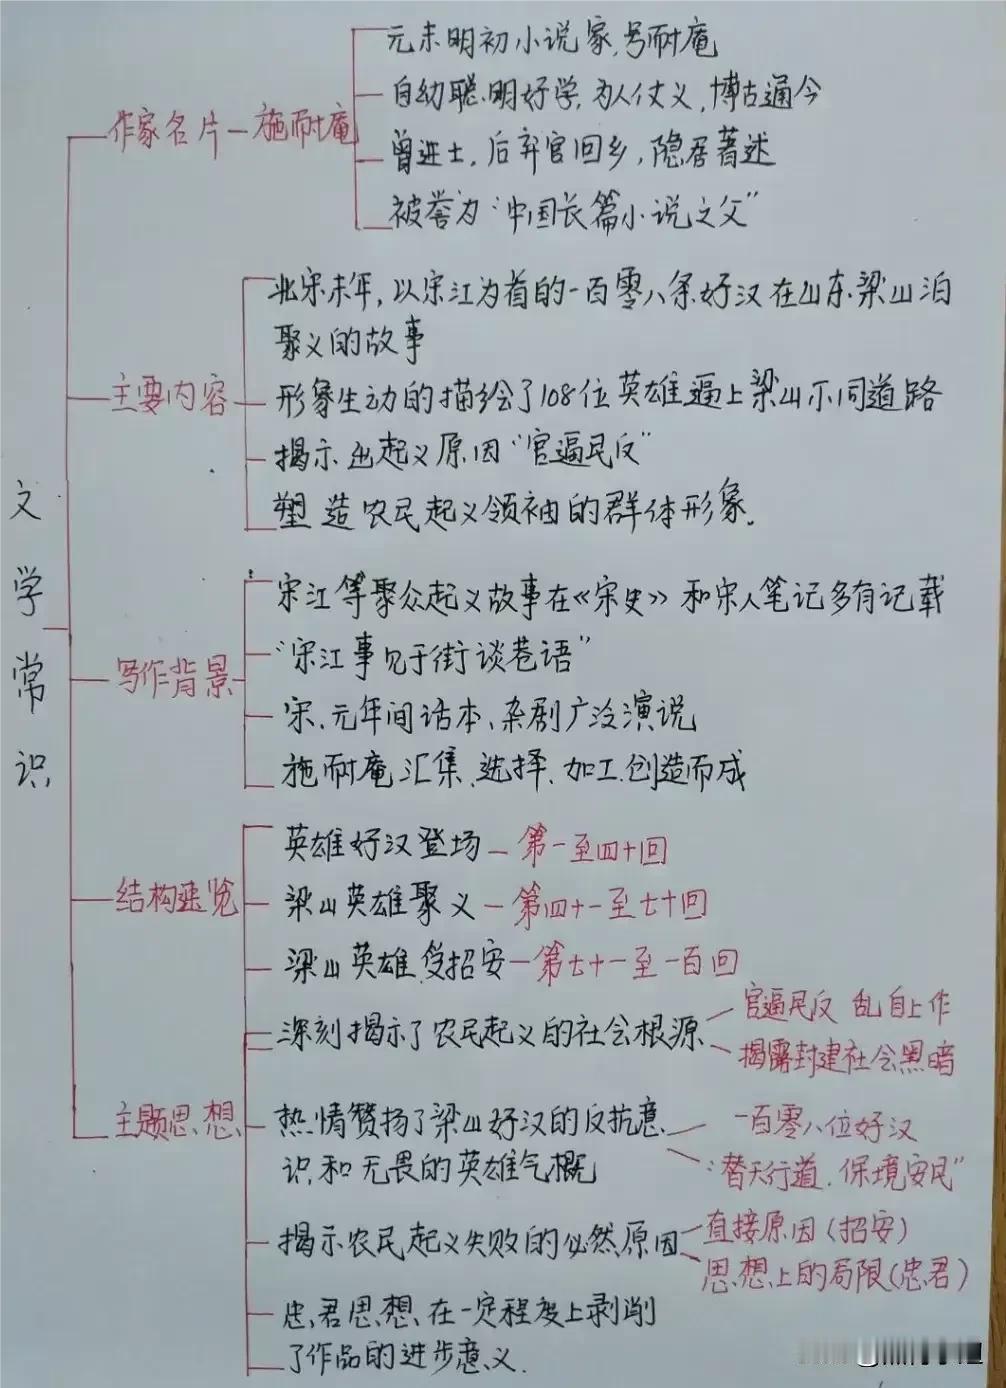 文学常识
作家名片
施耐庵
元末明初小说家,号耐庵
自幼聪明好学,为人仗义,博古通今
曾进士,后弃官回乡,隐居著述
被誉为“中国长篇小说之父”
主要内容
北宋末年,以宋江为首的一百零八条好汉在山东梁山泊
聚义的故事
形象生动的描绘了108位英雄逼上梁山不同道路
揭示出起义原因“官逼民反”
塑造农民起义领袖的群体形象.
写作背景
宋江等聚众起义故事在《宋史》和宋人笔记多有记载
“宋江事见于街谈巷语”
宋、元年间话本、杂剧广泛演说
施耐庵汇集、选择、加工、创造而成
结构速览
英雄好汉登场
第一至四十回
梁山英雄聚义
第四十一至七十回
梁山英雄受招安
第七十一至一百回
主题思想
深刻揭示了农民起义的社会根源
官逼民反 乱自上作
揭露封建社会黑暗
热情赞扬了梁山好汉的反抗意
识和无畏的英雄气概
一百零八位好汉
“替天行道、保境安民”
揭示农民起义失败的必然原因
直接原因(招安)
思想上的局限(忠君)
忠君思想在一定程度上剥削
了作品的进步意义.